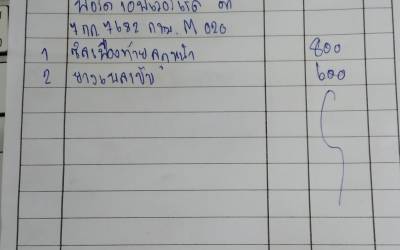 ฟอร์ด เอฟเวอร์เรส
7 กก 7682 กทม. M 020
1 ซีลเฟืองท้ายลูกหน้า 800
2 600